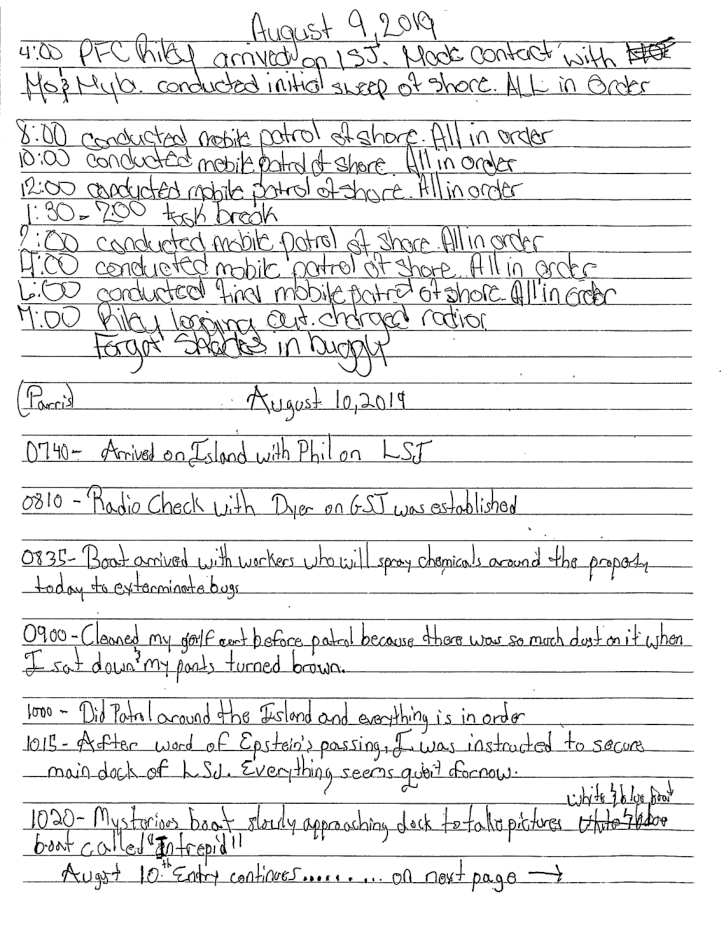 August 9, 2019
4:00 PFC Riley arrived on LSJ. Made contact with
Mo & Myla. conducted initial sweep of shore. ALL in Order
8:00 conducted mobile patrol of shore. All in order
10:00 conducted mobile patrol of shore. All in order
12:00 conducted mobile patrol of shore. All in order
1:30 - 2:00 took break
2:00 conducted mobile patrol of shore. All in order
4:00 conducted mobile patrol of shore. All in order
6:00 conducted final mobile patrol of shore. All in order
7:00 Riley logging out. charged radios
Forgot Shades in buggy
(Parris) August 10, 2019
0740- Arrived on Island with Phil on LSJ
0810 - Radio Check with Dyer on GSJ was established
0835- Boat arrived with workers who will spray chemicals around the property
today to exterminate bugs
0900 - Cleaned my golf cart before patrol because there was so much dust on it when
I sat down my pants turned brown.
1000 - Did Patrol around the Island and everything is in order
1015 - After word of Epstein's passing, I was instructed to secure
main dock of LSJ. Everything seems quiet for now.
white & blue boat
1020- Mysterious boat slowly approaching dock to take pictures
boat called "Intrepid"
August 10th Entry continues......... on next page →